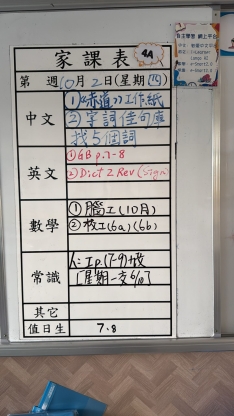 家課表 4A
第 週 10月2日(星期四)
中文
①«赤道»工作紙
②字詞佳句庫
找5個詞
英文
①GB p.7-8
②Dict 2 Rev (sign)
數學
①腦工(10月)
②校工(6a)(6b)
常識
[星期一交6/10]
其它
值日生 7.8
自主學習 網上平台